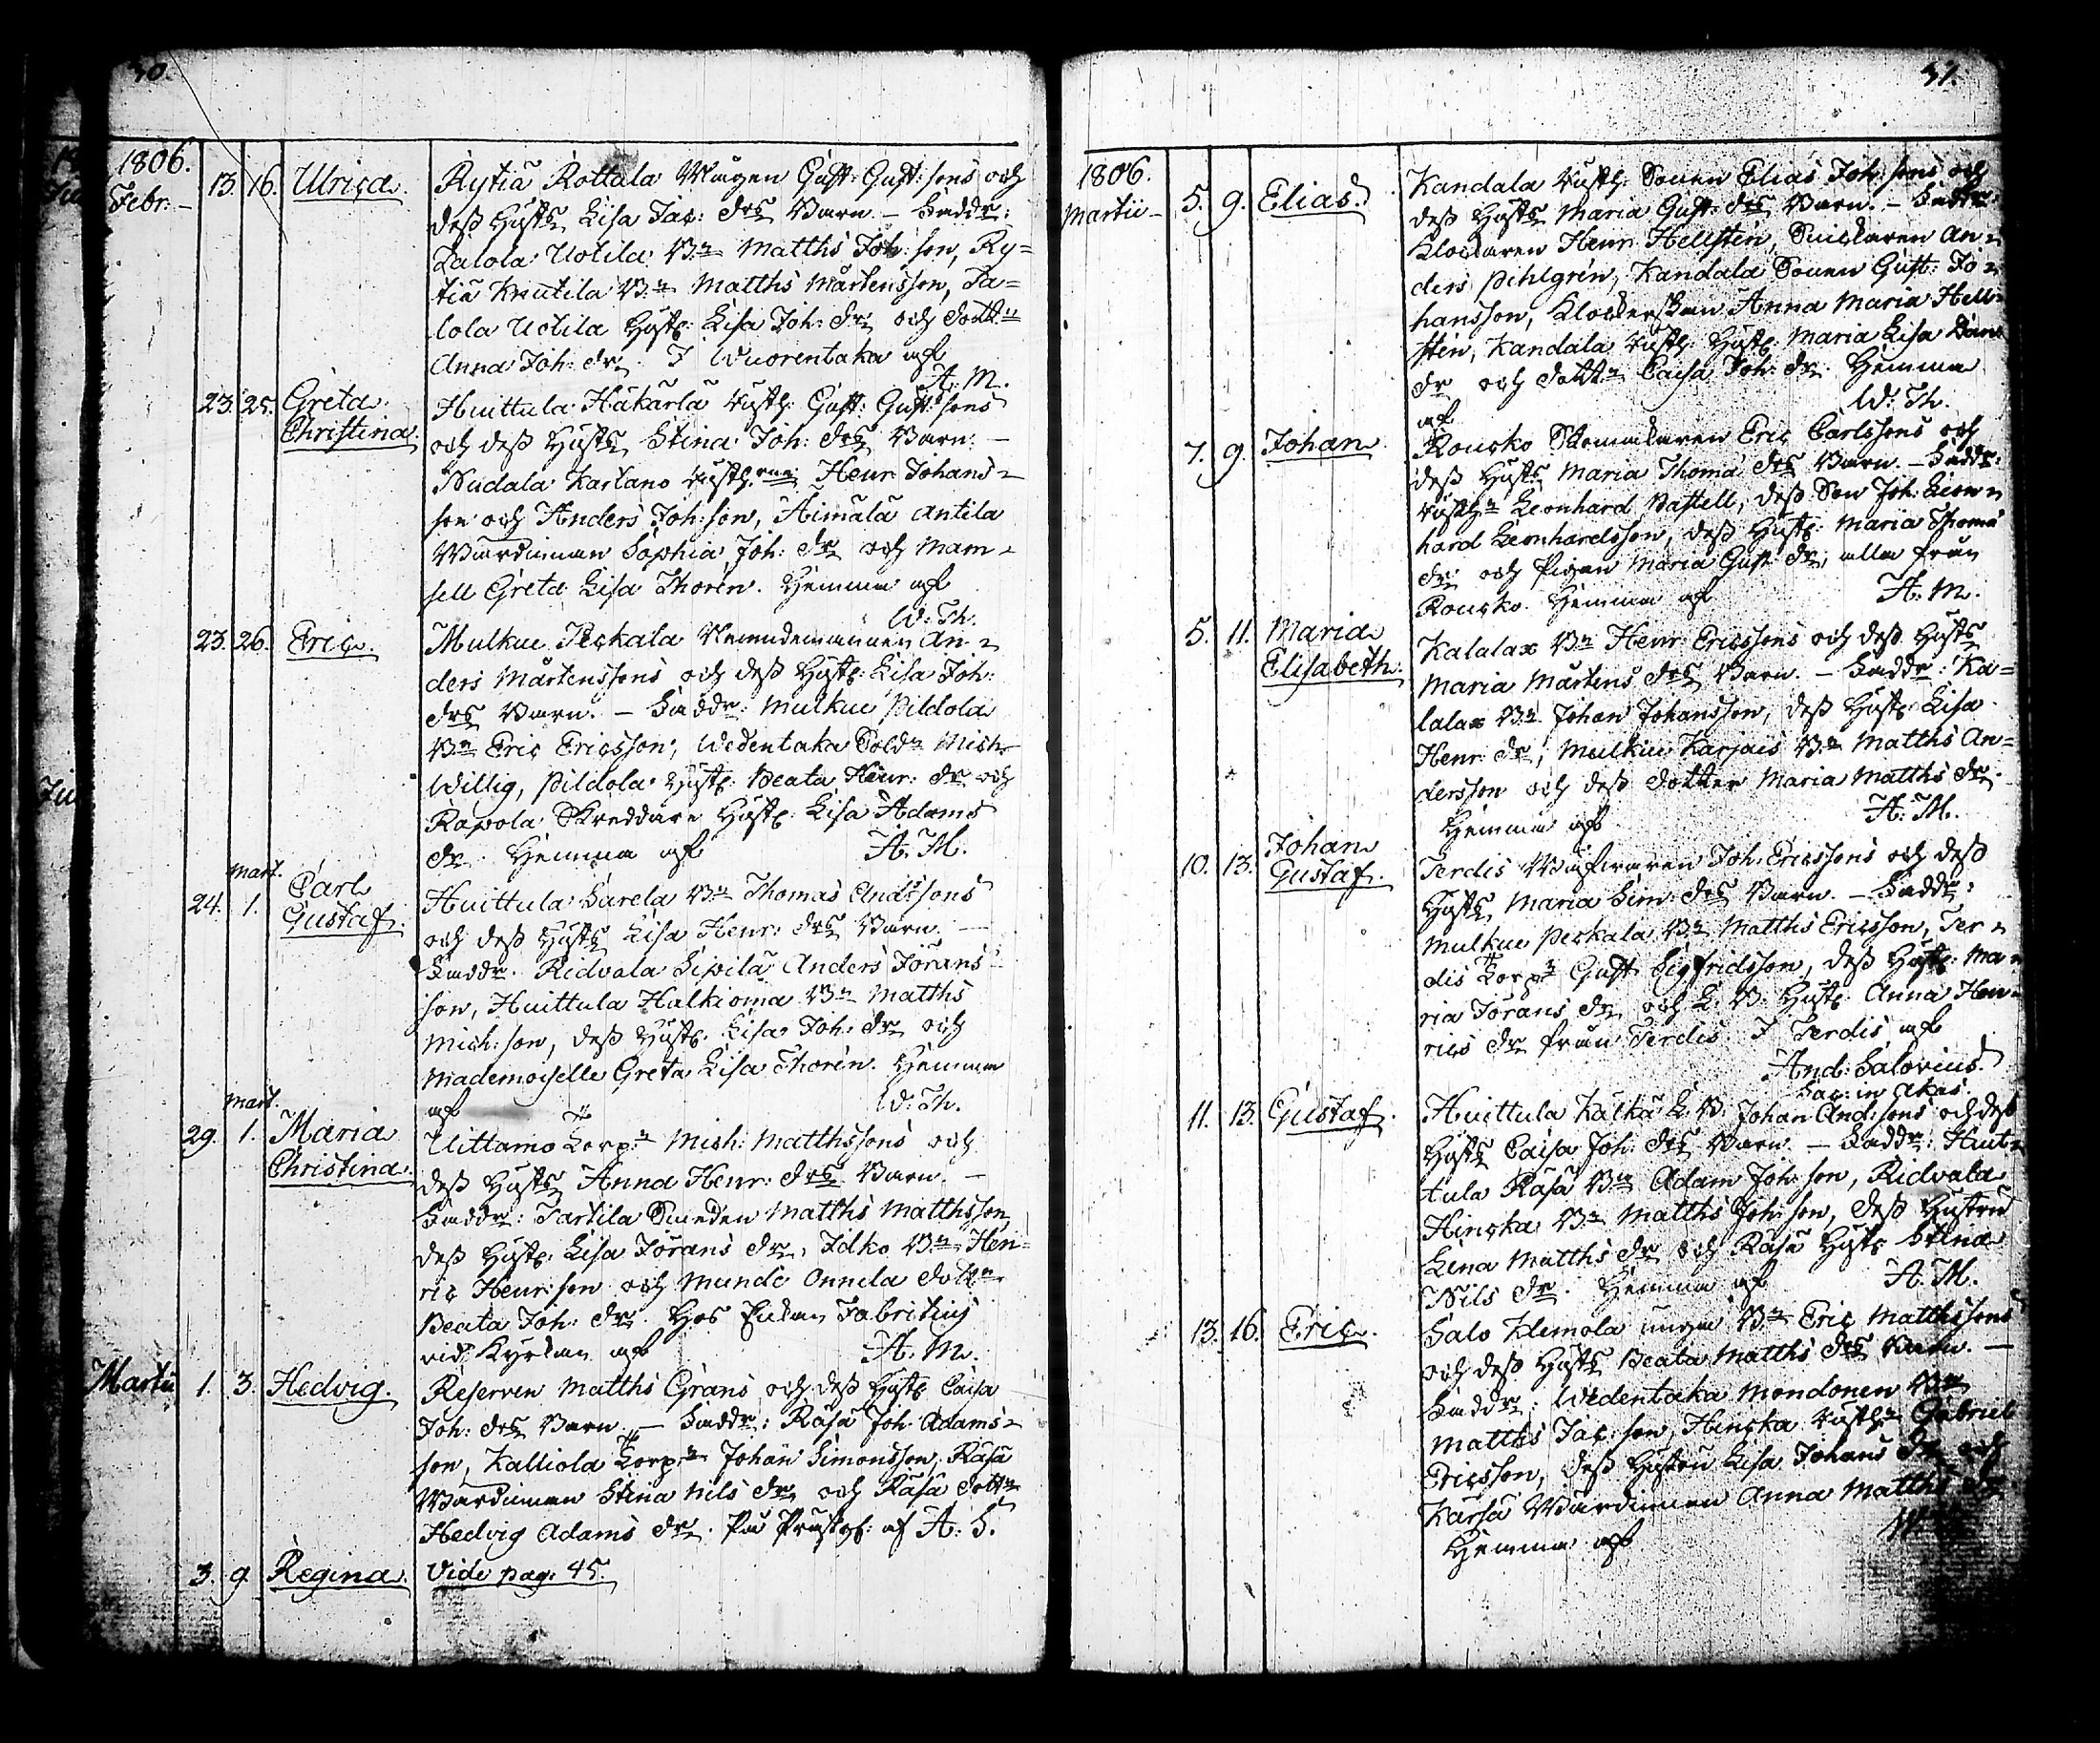 30.
1806.
Febr: –
13. 16. Ulrica.
Rytiä Rottala Mågen Gust: Gust: sons och
dess Hust: Lisa Jac: drs Barn. – Faddr:
Talola Uotila Bn Matths Joh: son, Ry=
tiä Knutila Bn Matths Mårtensson, Ta=
lola Uotila Hust: Lisa Joh: dr och dottn
Anna Joh: dr. I Wuorentaka af
A. M.
23. 25. Greta
Christina.
Huittula Häkärlä Gust: Gust: sons
och dess Hust: Stina Joh: drs Barn. –
Nudala Kartano Henr: Johans=
son och Anders Joh: son, Äimälä Antila
Wärdinnan Sophia Joh: dr och Mam=
sell Greta Lisa Thorén. Hemma af
W: Th.
23. 26. Eric.
Mulkue Peckala Nämndemannen An=
ders Mårtenssons och dess Hust: Lisa Joh:
drs Barn. – Faddr: Mulkue Pildola
Bn Eric Ericsson, Wedentaka Soldn Mich:
Willig, Pildola Hust: Beata Henr: dr och
Rapola Skreddare Hust: Lisa Adams
dr. Hemma af A. M.
Mart.
24. 1. Carl
Gustaf.
Huittula Sarela Bn Thomas And: sons
och dess Hust: Lisa Henr: drs Barn. –
Faddr. Ridvala Sipilä Anders Jörans=
son, Huittula Halkioma Bn Matths
Mich: son, dess Hust: Lisa Joh: dr och
Mademoiselle Greta Lisa Thorén. Hemma
af W: Th.
Mart.
29. 1. Maria
Christina.
Uittamo Torp:n Mich: Matthssons och
dess Hust: Anna Henr: drs Barn. –
Faddr: Tartila Smeden Matths Matthsson
dess Hust: Lisa Jörans dr, Jdko Bn Hen=
ric Henr: son och Munde Onnela dottn
Beata Joh: dr. Hos Enkan Fabritius
vid Kyrkan af A. M.
Martii 1. 3. Hedvig.
Reserven Matths Grans och dess Hust: Caisa
Joh: drs Barn. – Faddr: Räsä Joh: Adams=
son, Kalliola Torp:n Johan Simonsson, Räsä
Wärdinnan Stina Nils dr och Räsä dottn
Hedvig Adams dr. På Prästg: af A: S.
3. 9 Regina.
Vide pag: 45.
31.
1806.
Martii – 5. 9. Elias.
Kandala Sonen Elias Joh: sons och
dess Hust: Maria Gust: drs Barn. – Faddr:
Klockaren Henr: Hellstén, Snickaren An=
ders Pihlgrén, Kandala Sonen Gust: Jo=
hansson, Klockerskan Anna Maria Hell=
stén, Kandala Hust: Maria Lisa
dr och dottn Caisa Joh: dr. Hemma
af W: Th.
7. 9. Johan.
Roucko Skomakaren Eric Carlssons och
dess Hust: Maria Thomä drs Barn. – Faddr:
Leonhard Bastell, dess Son Joh: Leon=
hard Leonhardsson, dess Hust: Maria Thomä
dr och Pigan Maria Gust: dr, alla från
Roucko. Hemma af A. M.
5. 11. Maria
Elisabeth.
Kalalax Bn Henr: Ericssons och dess Hust:
Maria Mårtens drs Barn. – Faddr: Ka=
lalax Bn Johan Johansson, dess Hust: Lisa
Henr: dr, Mulkue Karjais Bn Matths An=
dersson och dess dotter Maria Matths dr.
Hemma af A. M.
10. 13. Johan
Gustaf.
Terdis Joh: Ericssons och dess
Hust: Maria Sim: drs Barn. – Faddr:
Mulkue Peckala Bn Matths Ericsson, Ter=
dis Torp:n Gust: Sigfridsson, dess Hust: Ma=
ria Jörans dr och L. B. Hust: Anna Hen=
rics dr från Terdis. I Terdis af
And: Salovius
Sac: in Akas.
11. 13. Gustaf.
Huittula Kälkä L. B. Johan And: sons och dess
Hust: Caisa Joh: drs Barn. – Faddr: Huit=
tula Räsä Bn Adam Joh: son, Ridvala
Hincka Bn Matths Joh: son, dess Hustru
Lena Matths dr och Räsä Hust: Stina
Nils dr. Hemma af A. M.
13. 16. Eric.
Salo Klemola unga Bn Eric Matthssons
och dess Hust: Beata Matths drs Barn. –
Faddr: Wedentaka Mondonen Bn
Matths Jac: son, Hincka Gabriel
Ericsson, dess Hustru Lisa Johans dr och
Karsa Wärdinnan Anna Matths dr.
Hemma af